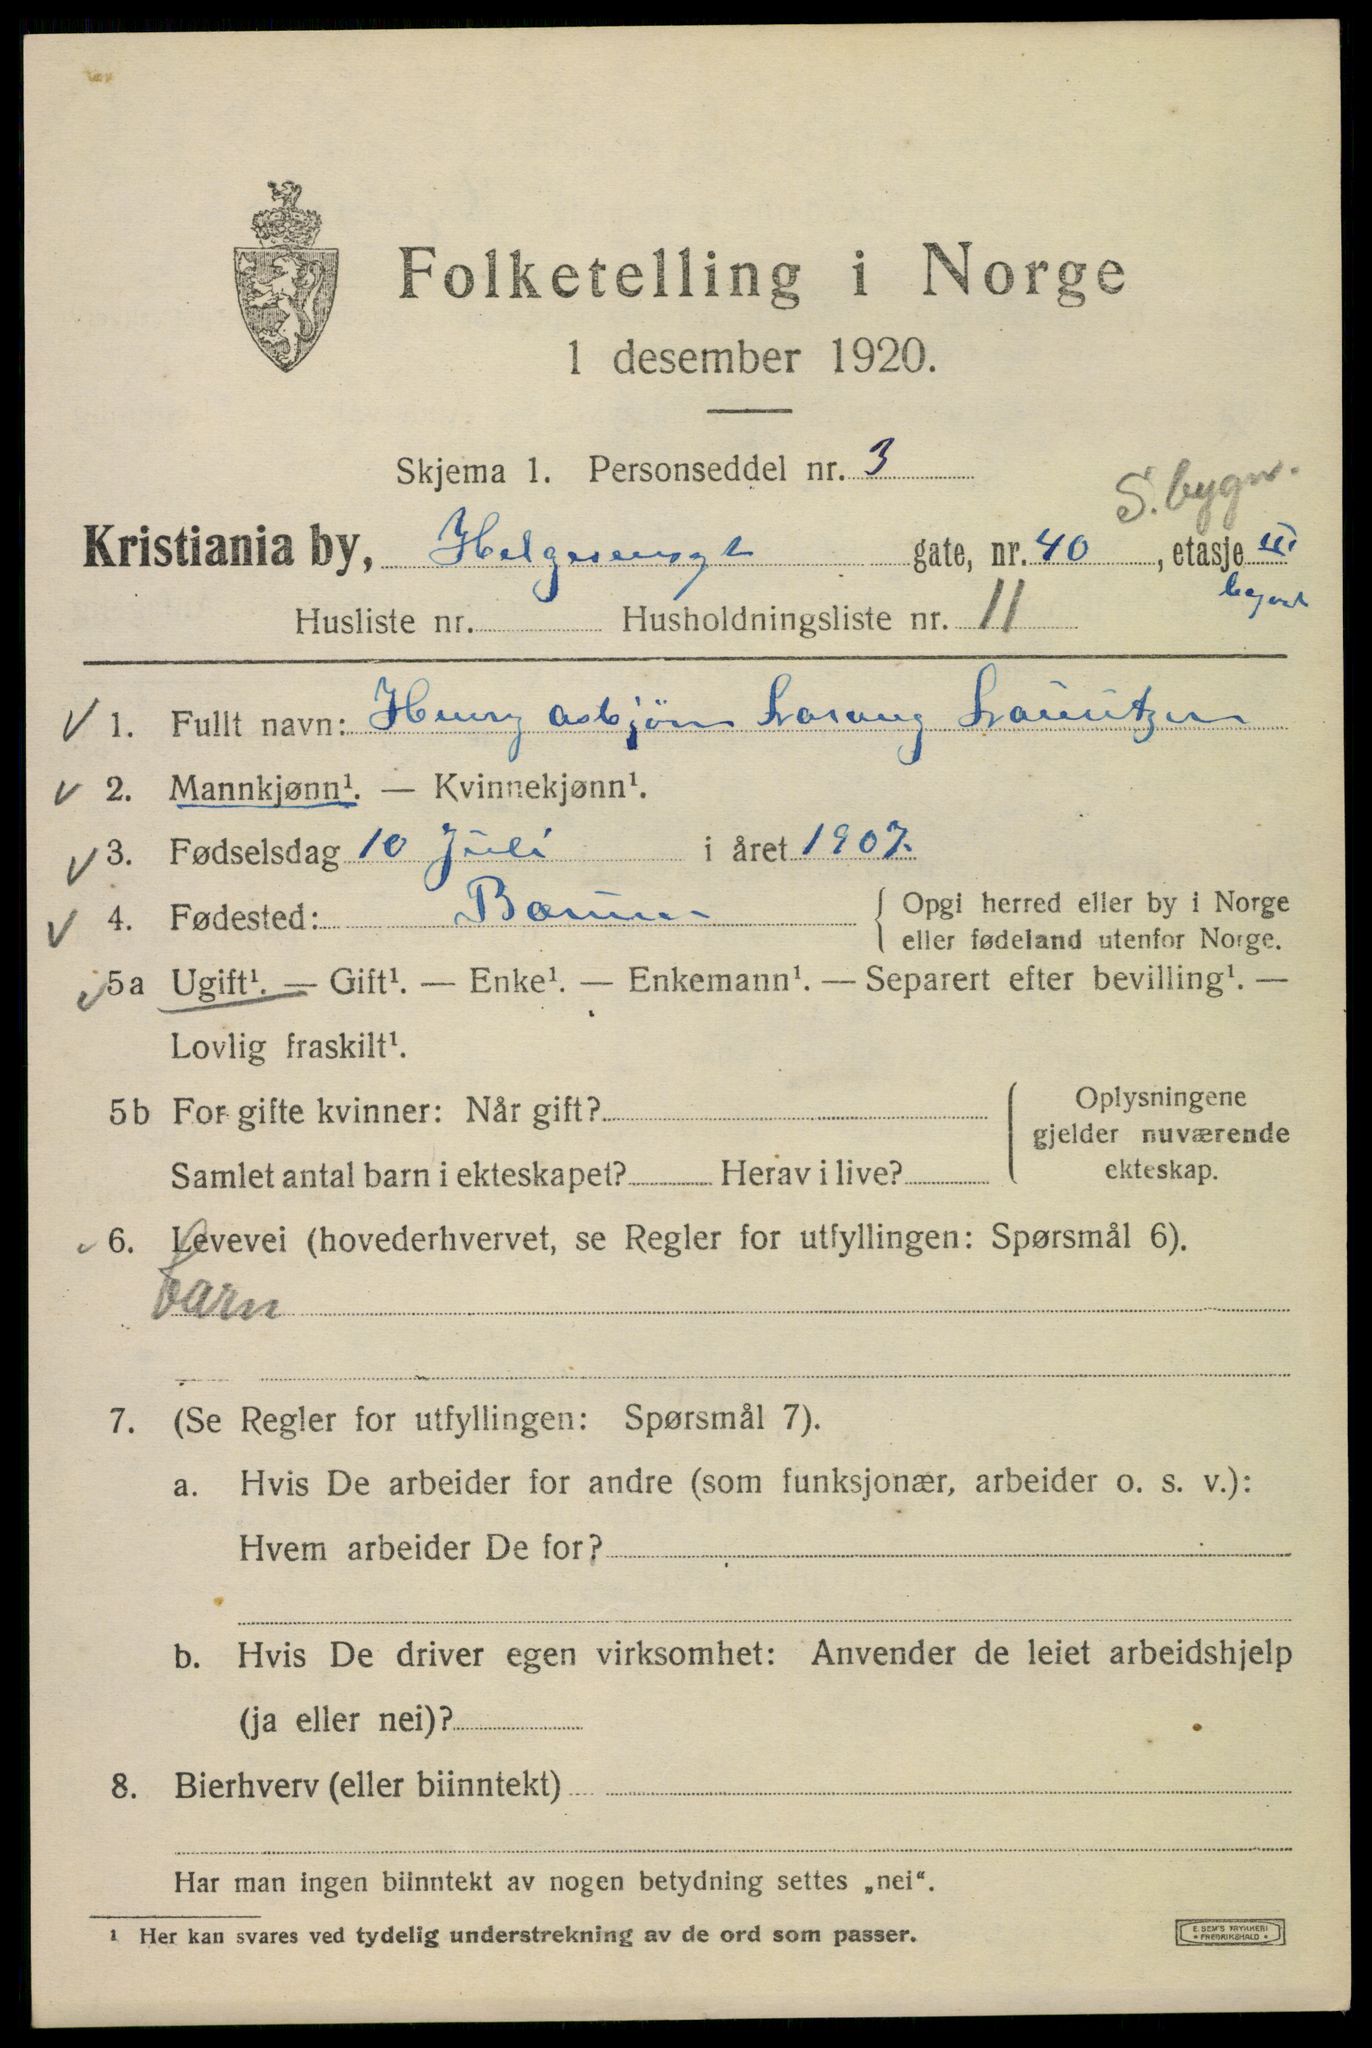 Folketelling i Norge
1 desember 1920.
Skjema 1. Personseddel nr. 3
S. bygn.
Kristiania by, Helgesensgt gate, nr. 40, etasje III
Husliste nr. Husholdningsliste nr. 11
1. Fullt navn: Henry Asbjørn Lauritzen
2. Mannkjønn¹. — Kvinnekjønn¹.
3. Fødselsdag 10 Juli i året 1907.
4. Fødested: Bærum
Opgi herred eller by i Norge
eller fødeland utenfor Norge.
5a Ugift¹. — Gift¹. — Enke¹. — Enkemann¹. — Separert efter bevilling¹. —
Lovlig fraskilt¹.
5b For gifte kvinner: Når gift?
Samlet antal barn i ekteskapet? Herav i live?
Oplysningene
gjelder nuværende
ekteskap.
6. Levevei (hovederhvervet, se Regler for utfyllingen: Spørsmål 6).
barn
7. (Se Regler for utfyllingen: Spørsmål 7).
a. Hvis De arbeider for andre (som funksjonær, arbeider o. s. v.):
Hvem arbeider De for?
b. Hvis De driver egen virksomhet: Anvender de leiet arbeidshjelp
(ja eller nei)?
8. Bierhverv (eller biinntekt)
Har man ingen biinntekt av nogen betydning settes „nei“.
¹ Her kan svares ved tydelig understrekning av de ord som passer.
E. SEM'S TRYKKERI
• FREDRIKSHALD •